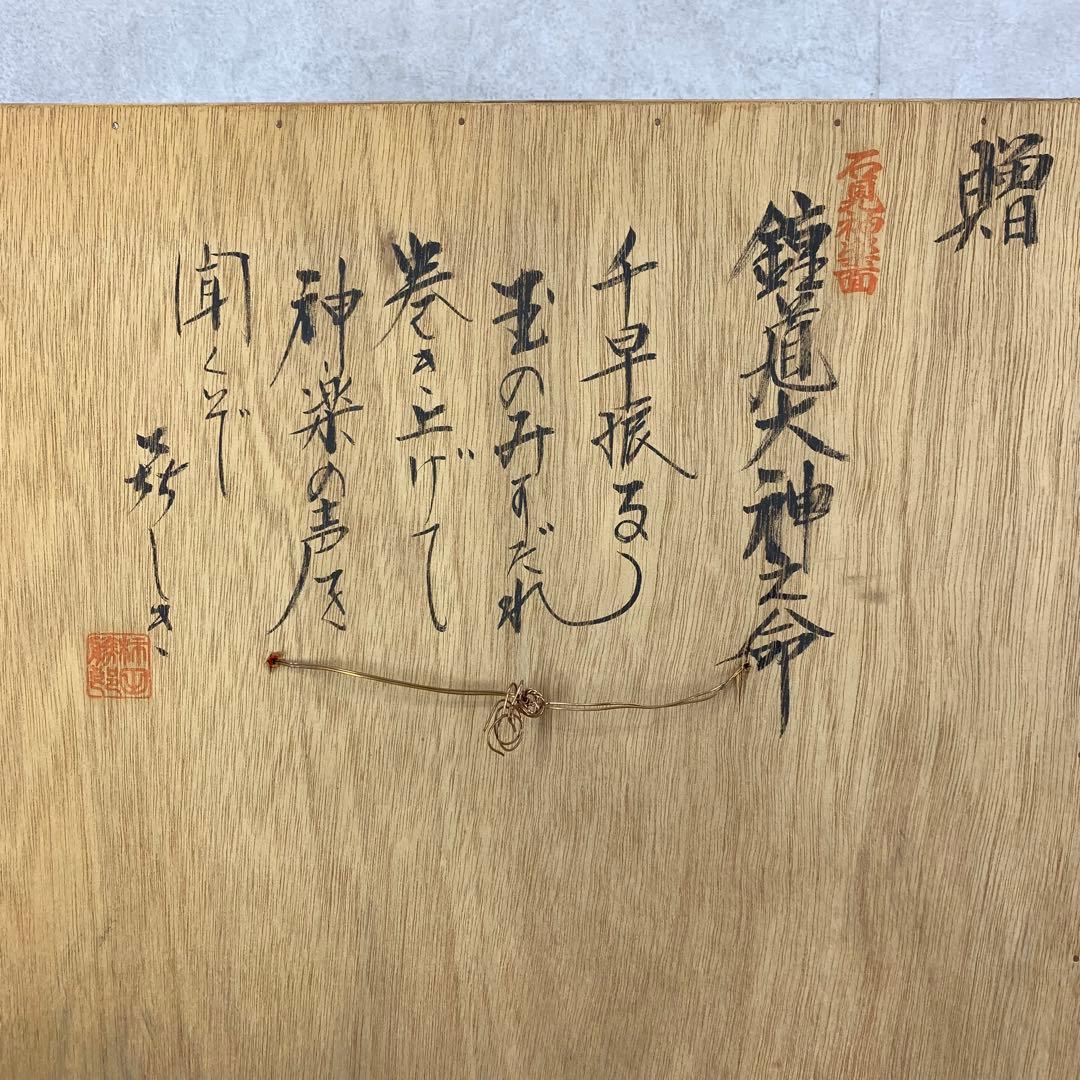 贈
石見神楽面
鐘道大神之命
千早振る
玉のみすだれ
巻き上げて
神楽の声を
聞くぞ
㐂しき
柿田勝郎